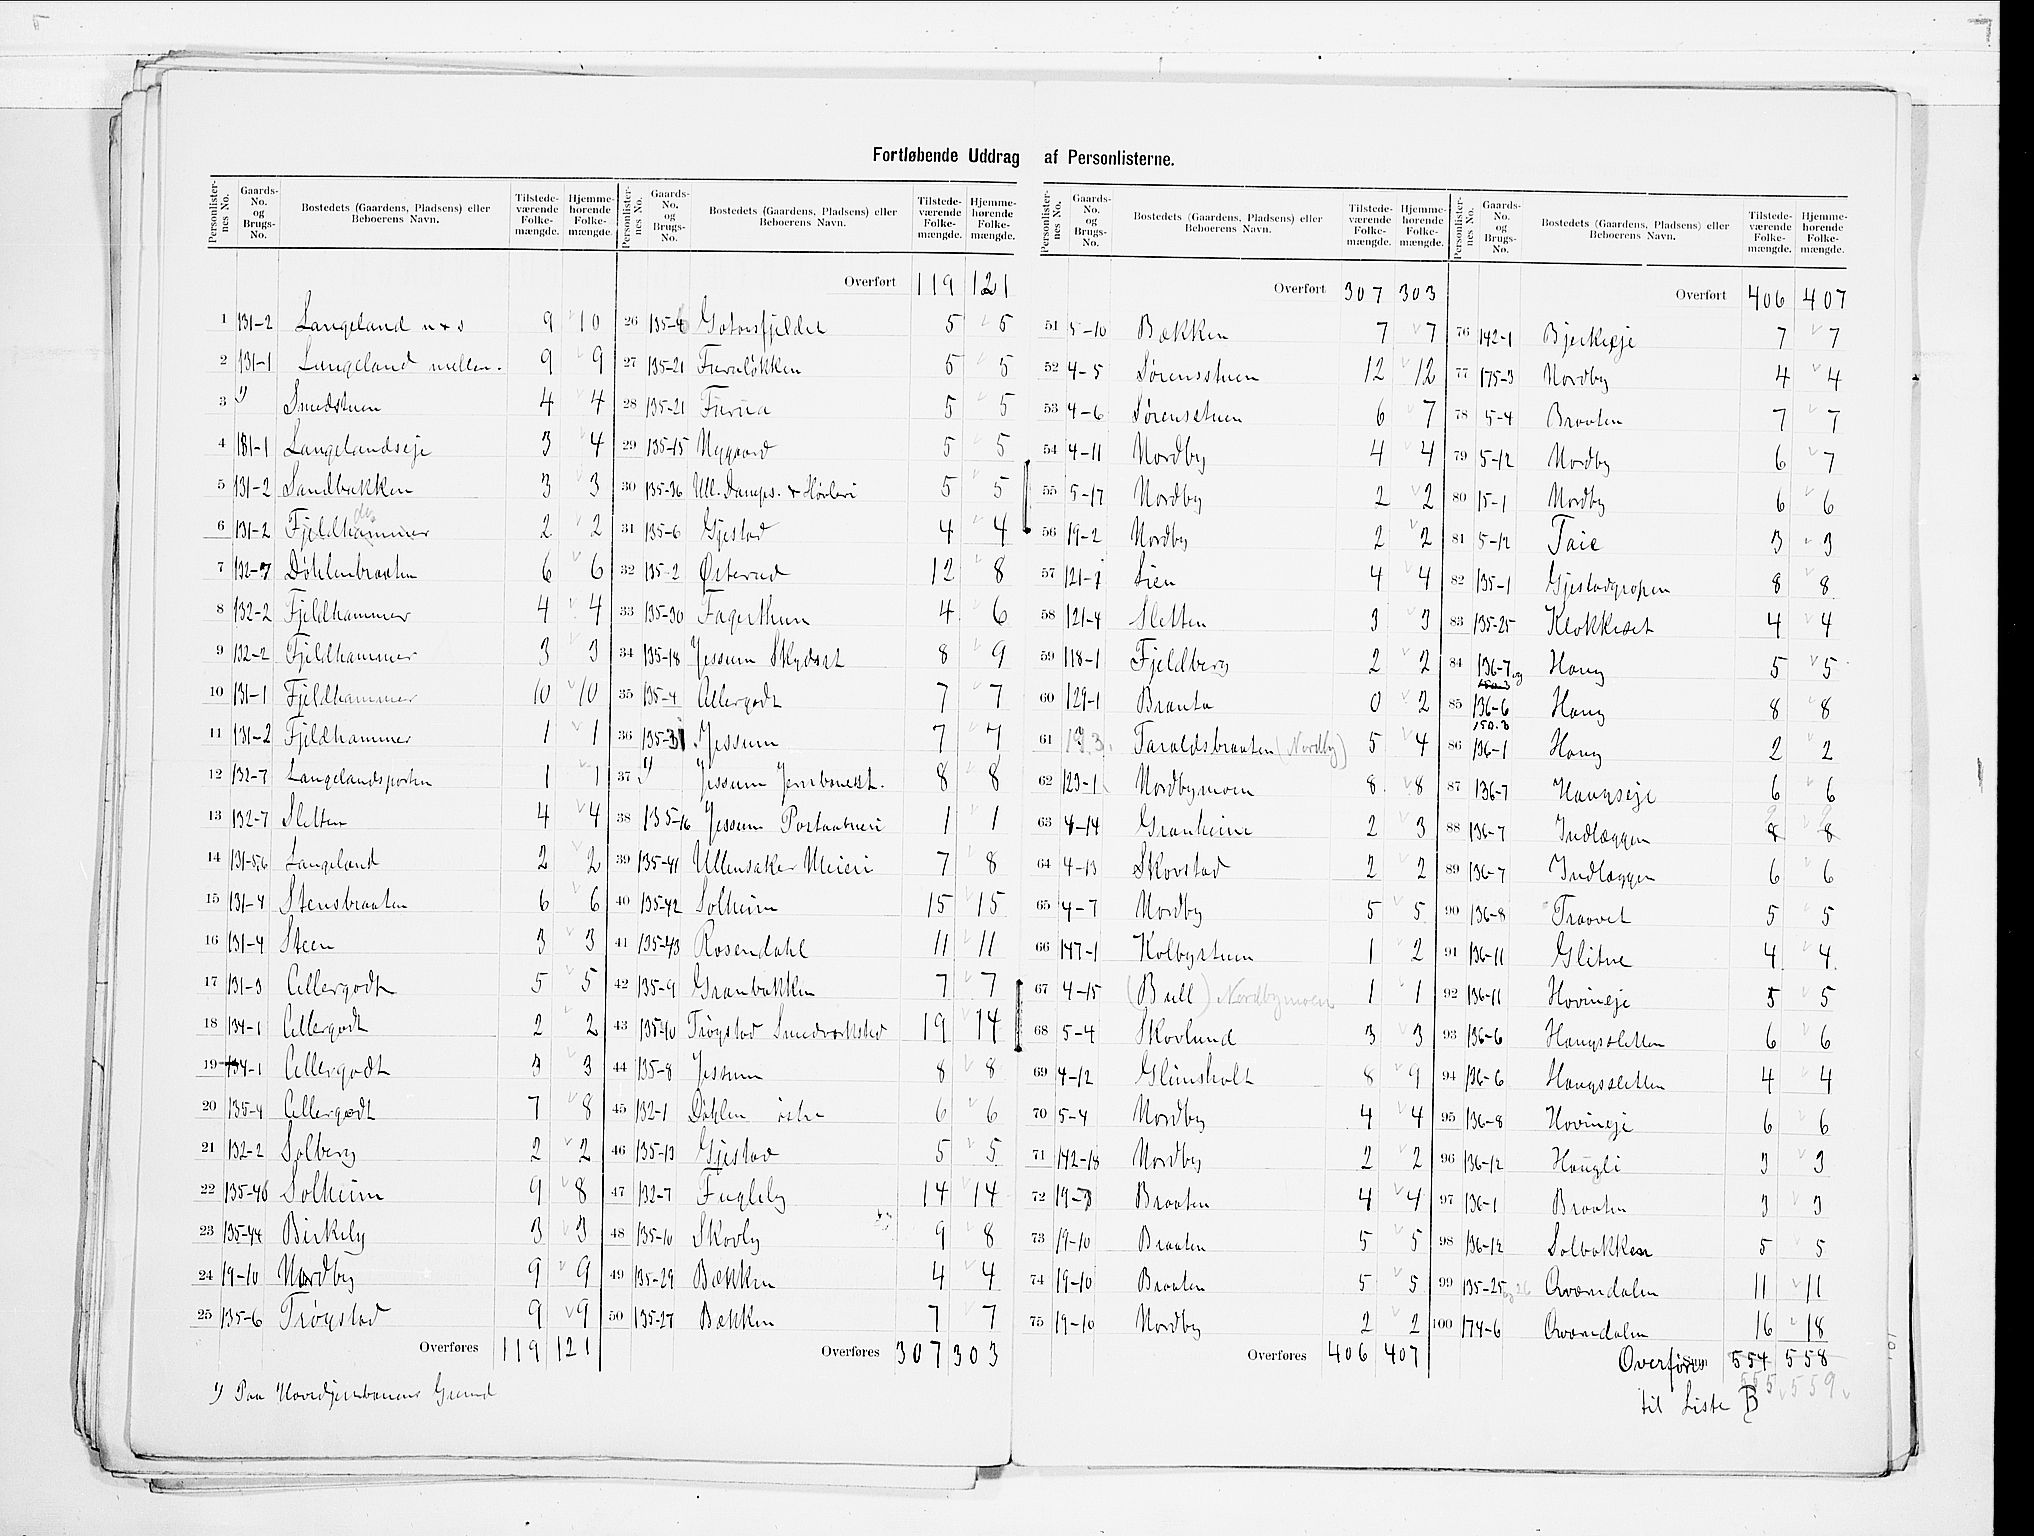 Fortløbende Uddrag af Personlisterne.
Personlister-nes No. Gaards-No. og Brugs-No. Bostedets (Gaardens, Pladsens) eller Beboerens Navn. Tilstede-værende Folke-mængde. Hjemme-hørende Folke-mængde.
1 131-2 Langeland n + s 9 10
2 131-1 Langeland mellem. 9 9
3 1) Smedstuen 4 4
4 181-1 Langelandseje 3 4
5 131-2 Sandbakken 3 3
6 131-2 Fjeldhammer 2 2
7 132-7 Døhlenbraaten 6 6
8 132-2 Fjeldhammer 4 4
9 132-2 Fjeldhammer 3 3
10 131-1 Fjeldhammer 10 10
11 131-2 Fjeldhammer 1 1
12 132-7 Langelandsporten 1 1
13 132-7 Sletten 4 4
14 131-5,6 Langeland 2 2
15 131-4 Stensbraaten 6 6
16 131-4 Steen 3 3
17 131-3 Allergodt 5 5
18 134-1 Allergodt 2 2
19 134-1 Allergodt 3 3
20 135-4 Allergodt 7 8
21 132-2 Solberg 2 2
22 135-46 Solheim 9 8
23 135-44 Birkely 3 3
24 19-10 Nordby 9 9
25 135-6 Trøgstad 9 9
Overføres 119 121
1) Paa Hovedjernbanens Grund
Personlister-nes No. Gaards-No. og Brugs-No. Bostedets (Gaardens, Pladsens) eller Beboerens Navn. Tilstede-værende Folke-mængde. Hjemme-hørende Folke-mængde.
Overført 119 121
26 135-6 5 5
27 135-21 Furuløkken 5 5
28 135-21 Furua 5 5
29 135-15 Nygaard 5 5
30 135-36 Ull. Damps. + Høvleri 5 5
31 135-6 Gjestad 4 4
32 135-2 Østerud 12 8
33 135-30 Fagerthun 4 6
34 135-18 Jessum Skydsst 8 9
35 135-4 Allergodt 7 7
36 135-31 Jessum 7 7
37 1) Jessum Jernbanest. 8 8
38 135-16 Jessum Postaabneri 1 1
39 135-41 Ullensaker Meieri 7 8
40 135-42 Solheim 15 15
41 135-43 Rosendahl 11 11
42 135-9 Granbakken 7 7
43 135-10 Trøgstad Smedverksted 19 14
44 135-8 Jessum 8 8
45 132-1 Døhlen østre 6 6
46 135-13 Gjestad 5 5
47 132-7 Fugleby 14 14
48 135-10 Skovly 9 8
49 135-29 Bækken 4 4
50 135-27 Bækken 7 7
Overføres 307 303
Personlister-nes No. Gaards-No. og Brugs-No. Bostedets (Gaardens, Pladsens) eller Beboerens Navn. Tilstede-værende Folke-mængde. Hjemme-hørende Folke-mængde.
Overført 307 303
51 5-10 Bækken 7 7
52 4-5 Sørensstuen 12 12
53 4-6 Sørensstuen 6 7
54 4-11 Nordby 4 4
55 5-17 Nordby 2 2
56 19-2 Nordby 2 2
57 121-1 Lien 4 4
58 121-4 Sletten 3 3
59 118-1 Fjeldberg 2 2
60 129-1 Branta 0 2
61 19.3. Taraldsbraaten (Nordby) 5 4
62 123-1 Nordbymoen 8 8
63 4-14 Granheim 2 3
64 4-13 Skovstad 2 2
65 4-7 Nordby 5 5
66 147-1 Kolbystuen 1 2
67 4-15 (Bull) Nordbymoen 1 1
68 5-4 Skovlund 3 3
69 4-12 Glimsholt 8 9
70 5-4 Nordby 4 4
71 142-18 Nordby 2 2
72 19-3 Braaten 4 4
73 19-10 Braaten 5 5
74 19-10 Braaten 5 5
75 19-10 Nordby 2 2
Overføres 406 407
Personlister-nes No. Gaards-No. og Brugs-No. Bostedets (Gaardens, Pladsens) eller Beboerens Navn. Tilstede-værende Folke-mængde. Hjemme-hørende Folke-mængde.
Overført 406 407
76 142-1 Bjerkeeje 7 7
77 175-3 Nordby 4 4
78 5-4 Braaten 7 7
79 5-12 Nordby 6 7
80 15-1 Nordby 6 6
81 5-12 Taie 3 3
82 135-1 Gjestadgropen 8 8
83 135-25 Klokkeset 4 4
84 136-7 og 150.3 Haug 5 5
85 136-6 150.3 Haug 8 8
86 136-1 Haug 2 2
87 136-7 Haugseje 6 6
88 136-7 Indlæggen 8 8
89 136-7 Indlæggen 6 6
90 136-8 Traavet 5 5
91 136-11 Glitne 4 4
92 136-11 Hovineje 5 5
93 136-6 Haugssletten 6 6
94 136-6 Haugssletten 4 4
95 136-8 Hovineje 6 6
96 136-12 Haugli 3 3
97 136-1 Braaten 3 3
98 136-12 Solbakken 5 5
99 135-25 og 26 Qværndalen 11 11
100 174-6 Qværndalen 16 18
Overføres 554 558
555 559
til Liste B